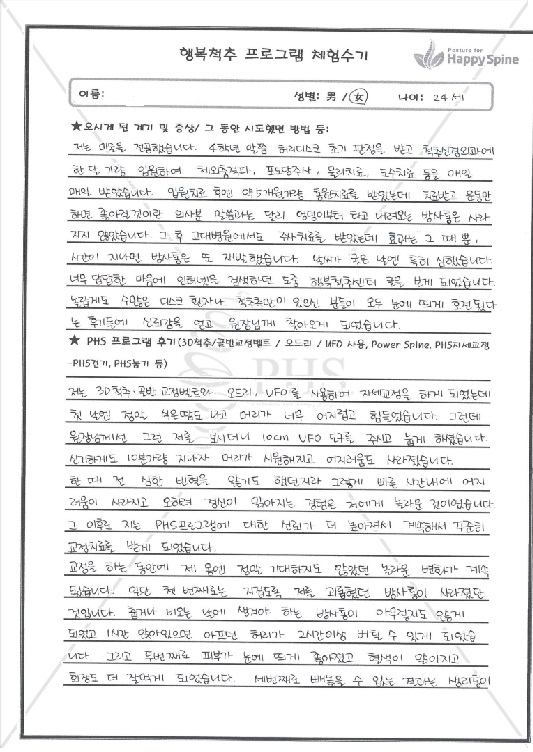 행복척추 프로그램 체험수기
Posture for
Happy Spine
이름: 성별: 男 / 女 나이: 24세
★오시게 된 계기 및 증상/ 그 동안 시도했던 방법 등:
저는 미술을 전공했습니다. 4학년 말쯤 허리디스크 초기 판정을 받고 척추신경외과에
한 달 가량 입원하여 체외충격파, 포도당주사, 물리치료, 도수치료 등을 매일
매일 받았습니다. 입원치료 후엔 약 5개월가량 통원치료를 받았는데 치료받고 운동만
하면 좋아질 것이란 의사분 말씀과는 달리 엉덩이부터 타고 내려오는 방사통은 사라
지지 않았습니다. 그 후 고대병원에서도 주사치료를 받았는데 효과는 그 때 뿐,
시간이 지나면 방사통은 또 재발했습니다. 날씨가 궂은 날엔 특히 심했습니다.
너무 답답한 마음에 인터넷을 검색하던 도중 행복척추센터 글을 보게 되었습니다.
놀랍게도 수많은 디스크 환자나 척추측만이 있으신 분들이 모두 눈에 띄게 호전됐다
는 후기들에 신뢰감을 얻고 원장님께 찾아오게 되었습니다.
★ PHS 프로그램 후기(3D척추/골반교정벨트 / 오드리 / UFO 사용, Power Spine, PHS자세교정
-PHS걷기, PHS눕기 등)
PHS
저는 3D척추·골반 교정벨트와 오드리, UFO를 사용하여 자세교정을 하게 되었는데
첫 날엔 정말 식은땀도 나고 머리가 너무 어지럽고 힘들었습니다. 그런데
원장님께선 그런 저를 보시더니 10cm UFO 도구를 주시고 눕게 하셨습니다.
신기하게도 10분가량 지나자 머리가 시원해지고 어지러움도 사라졌습니다.
한 때 전 심한 빈혈을 앓기도 했던지라 그렇게 빠른 시간내에 어지
러움이 사라지고 오히려 정신이 맑아지는 경험은 저에게 놀라운 것이었습니다.
그 이후로 저는 PHS프로그램에 대한 신뢰가 더 높아져서 계속해서 꾸준히
교정치료를 받게 되었습니다.
교정을 하는 동안에 제 몸엔 정말 기대하지도 않았던 놀라운 변화가 계속
됐습니다. 일단 첫 번째로는 지긋지긋 저를 괴롭혔던 방사통이 사라졌던
것입니다. 춥거나 비오는 날에 생겨야 하는 방사통이 아무렇지도 않게
되었고 1시간 앉아있으면 아프던 허리가 2시간이상 버틸 수 있게 되었습
니다. 그리고 두번째로 피부가 눈에 띄게 좋아졌고 혈색이 맑아지고
화장도 더 잘먹게 되었습니다. 세번째로 빼놓을 수 없는 결과는 생리통이